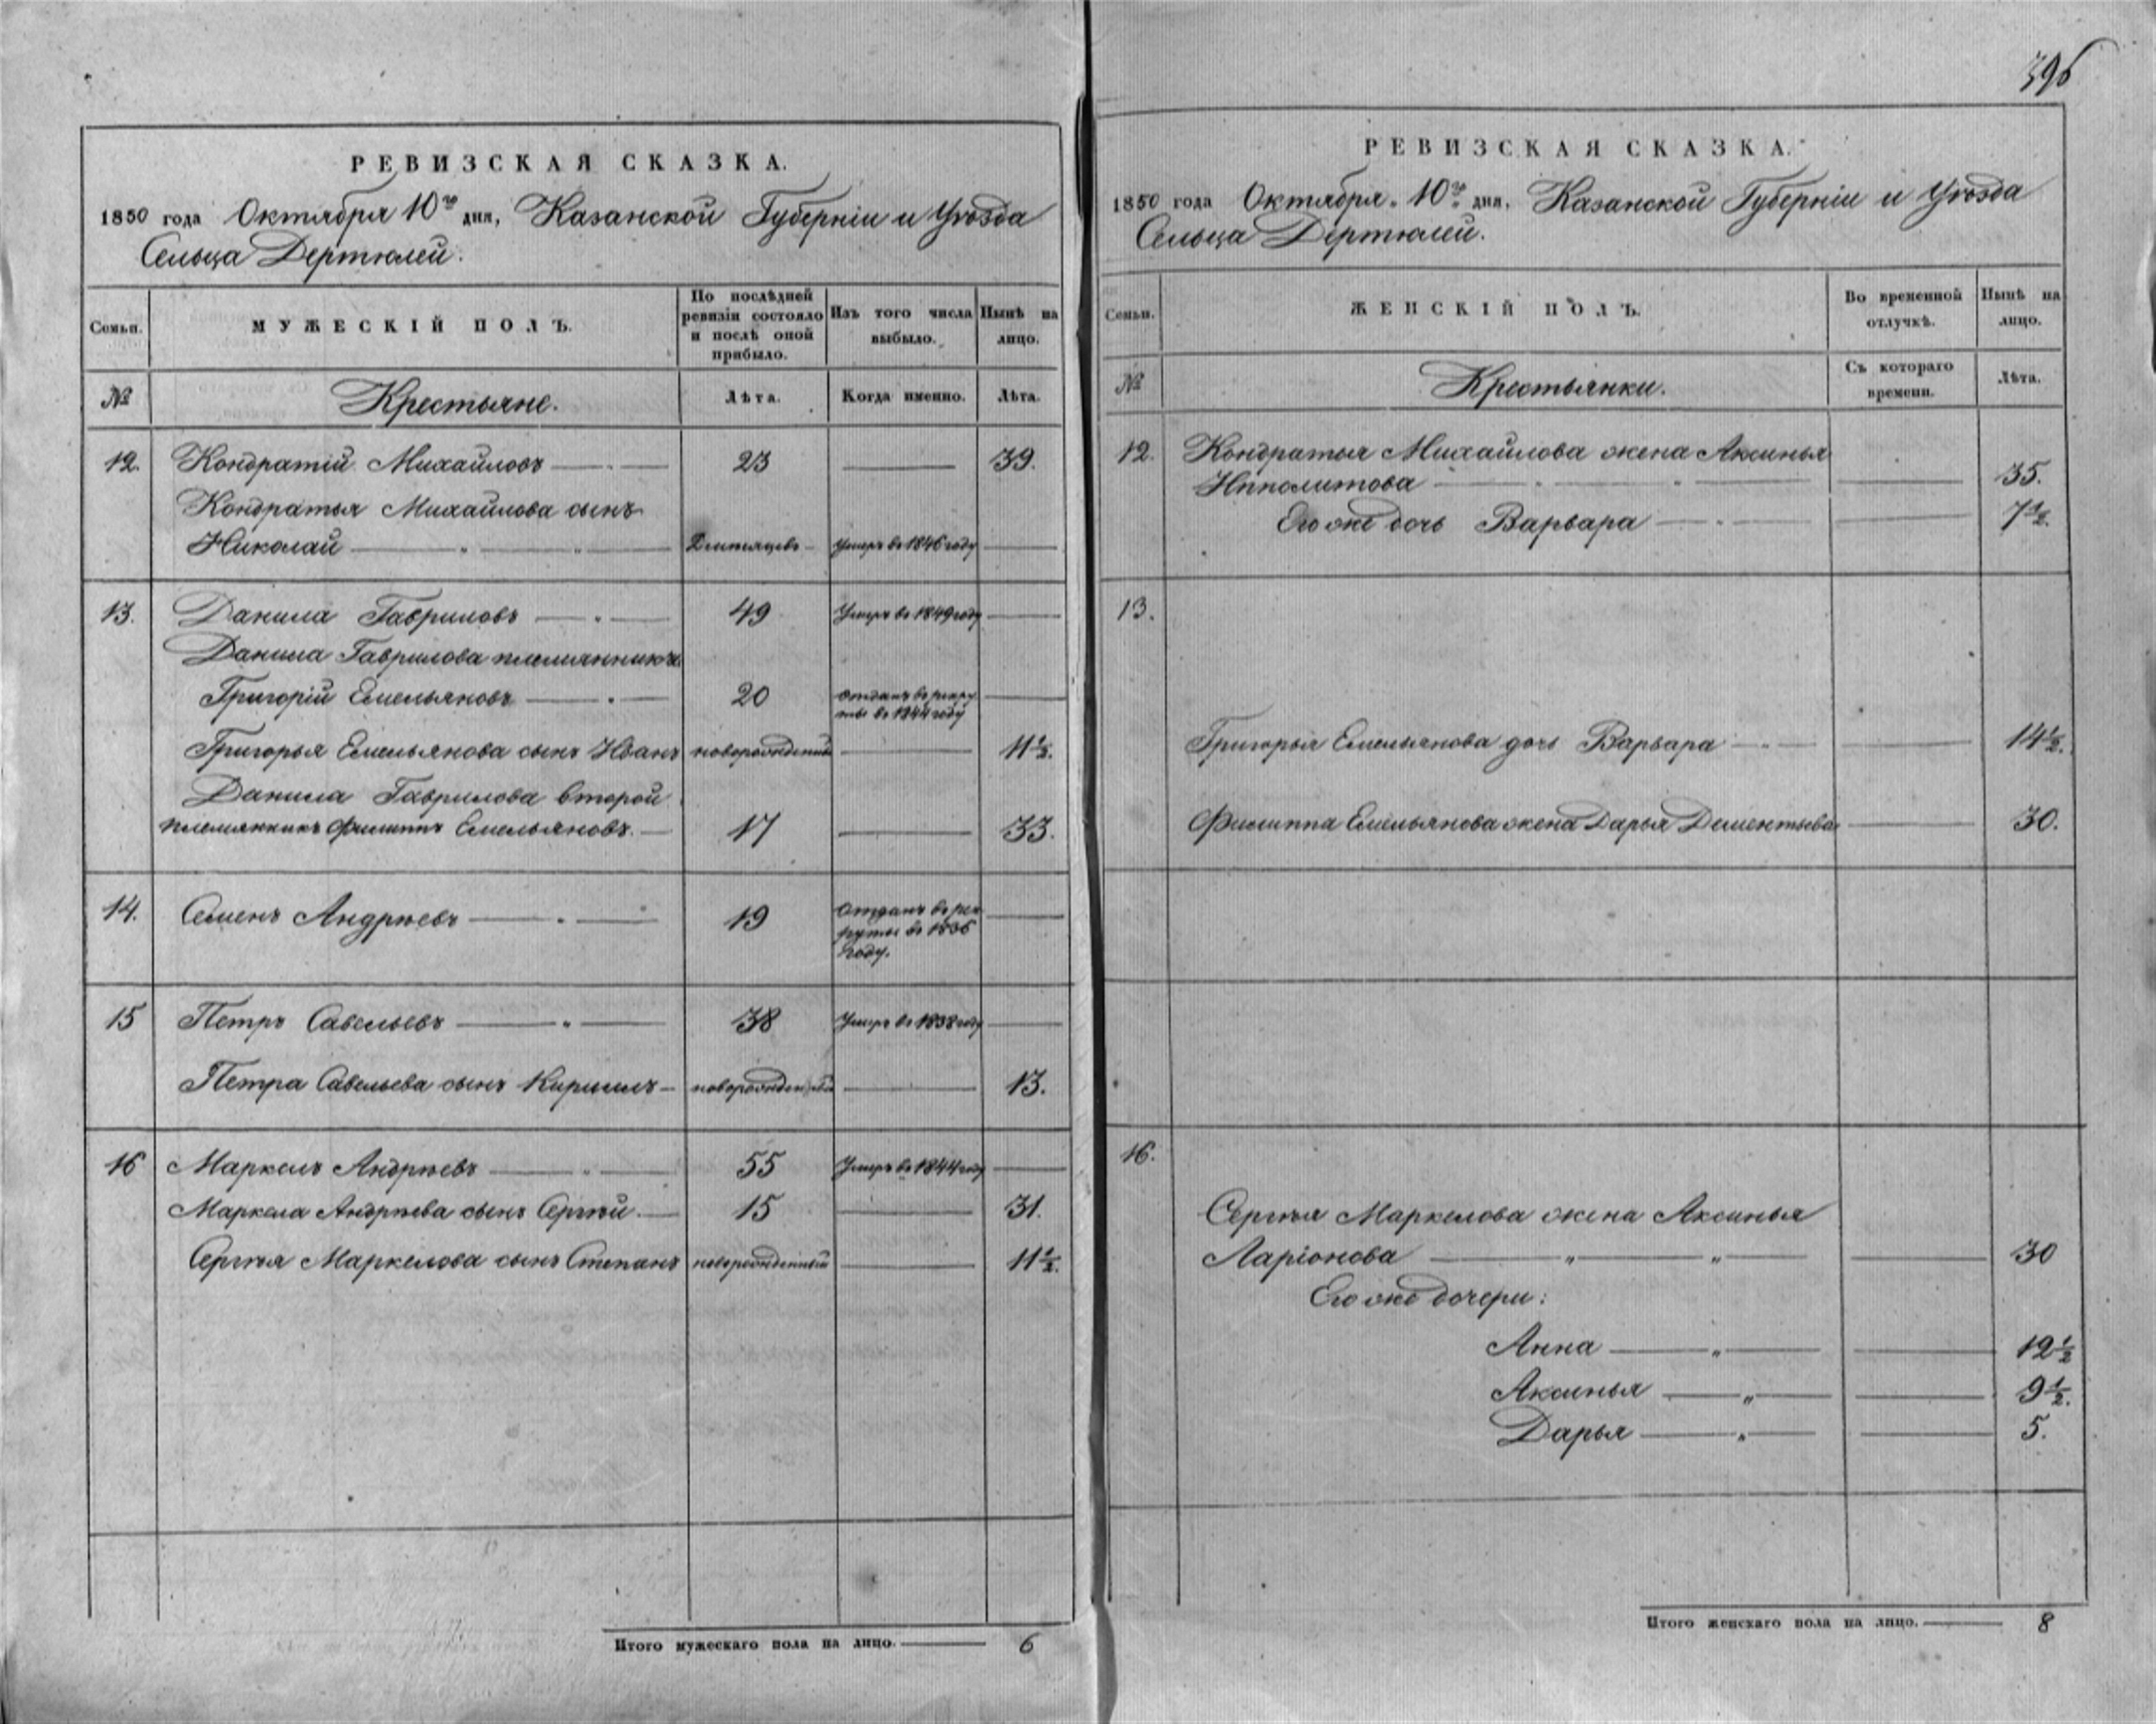 396
РЕВИЗСКАЯ СКАЗКА.
1850 года Октября 10го дня, Казанской Губерніи и Уѣзда
Сельца Дертюлей.
Семьи. МУЖЕСКІЙ ПОЛЪ. По послѣдней ревизіи состояло и послѣ оной прибыло. Изъ того числа выбыло. Нынѣ на лицо.
№ Крестьяне. Лѣта. Когда именно. Лѣта.
12. Кондратій Михайловъ 23 39.
Кондратья Михайлова сынъ
Николай умеръ въ 1846 году
13. Данила Гавриловъ 49 Умеръ въ 1849 году
Данила Гаврилова племянникъ
Григорій Емельяновъ 20 отданъ въ рекру
ты въ 1844 году
Григорья Емельянова сынъ Иванъ новорожденный 11½.
Данила Гаврилова второй
племянникъ Филиппъ Емельяновъ. 17 33.
14. Семенъ Андрѣевъ 19 отданъ въ рек
руты въ 1836
году.
15 Петръ Савельевъ 38 Умеръ въ 1838 году
Петра Савельева сынъ Кирилъ новорожденный 13.
16 Маркелъ Андрѣевъ 55 Умеръ въ 1844 году
Маркела Андрѣева сынъ Сергѣй 15 31.
Сергѣя Маркелова сынъ Степанъ новорожденный 11½.
Итого мужескаго пола на лицо. 6
РЕВИЗСКАЯ СКАЗКА.
1850 года Октября 10го дня, Казанской Губерніи и Уѣзда
Сельца Дертюлей.
Семьи. ЖЕНСКІЙ ПОЛЪ. Во временной отлучкѣ. Нынѣ на лицо.
№ Крестьянки. Съ котораго времени. Лѣта.
12. Кондратья Михайлова жена Аксинья
Ипполитова 35.
Его же дочь Варвара 7½.
13.
Григорья Емельянова дочь Варвара 14½.
Филиппа Емельянова жена Дарья Дементьева 30.
16.
Сергѣя Маркелова жена Аксинья
Ларіонова 30
Его же дочери:
Анна 12½
Аксинья 9½.
Дарья 5.
Итого женскаго пола на лицо. 8